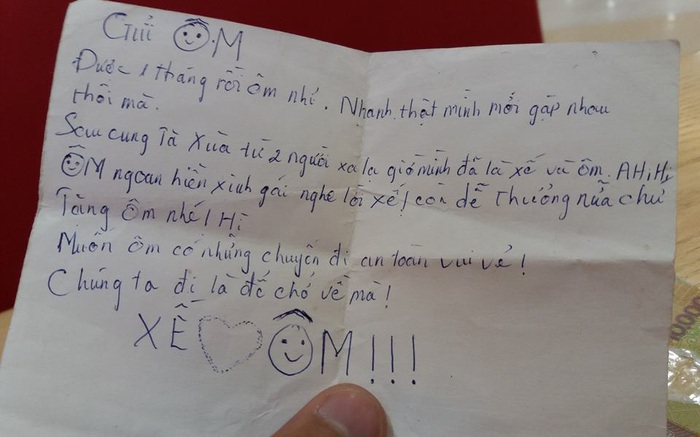 Gửi ÔM
Được 1 tháng rồi ôm nhỉ. Nhanh thật mình mới gặp nhau
thôi mà.
Sau cung Tà Xùa từ 2 người xa lạ giờ mình đã là xế và ôm. AHiHi
ÔM ngoan hiền xinh gái nghe lời xế! còn dễ Thương nữa chứ
Tặng ôm nhé! Hì
Muốn ôm có những chuyến đi an toàn vui vẻ!
Chúng ta đi là để chở về mà!
XẾ ♡ ÔM!!!